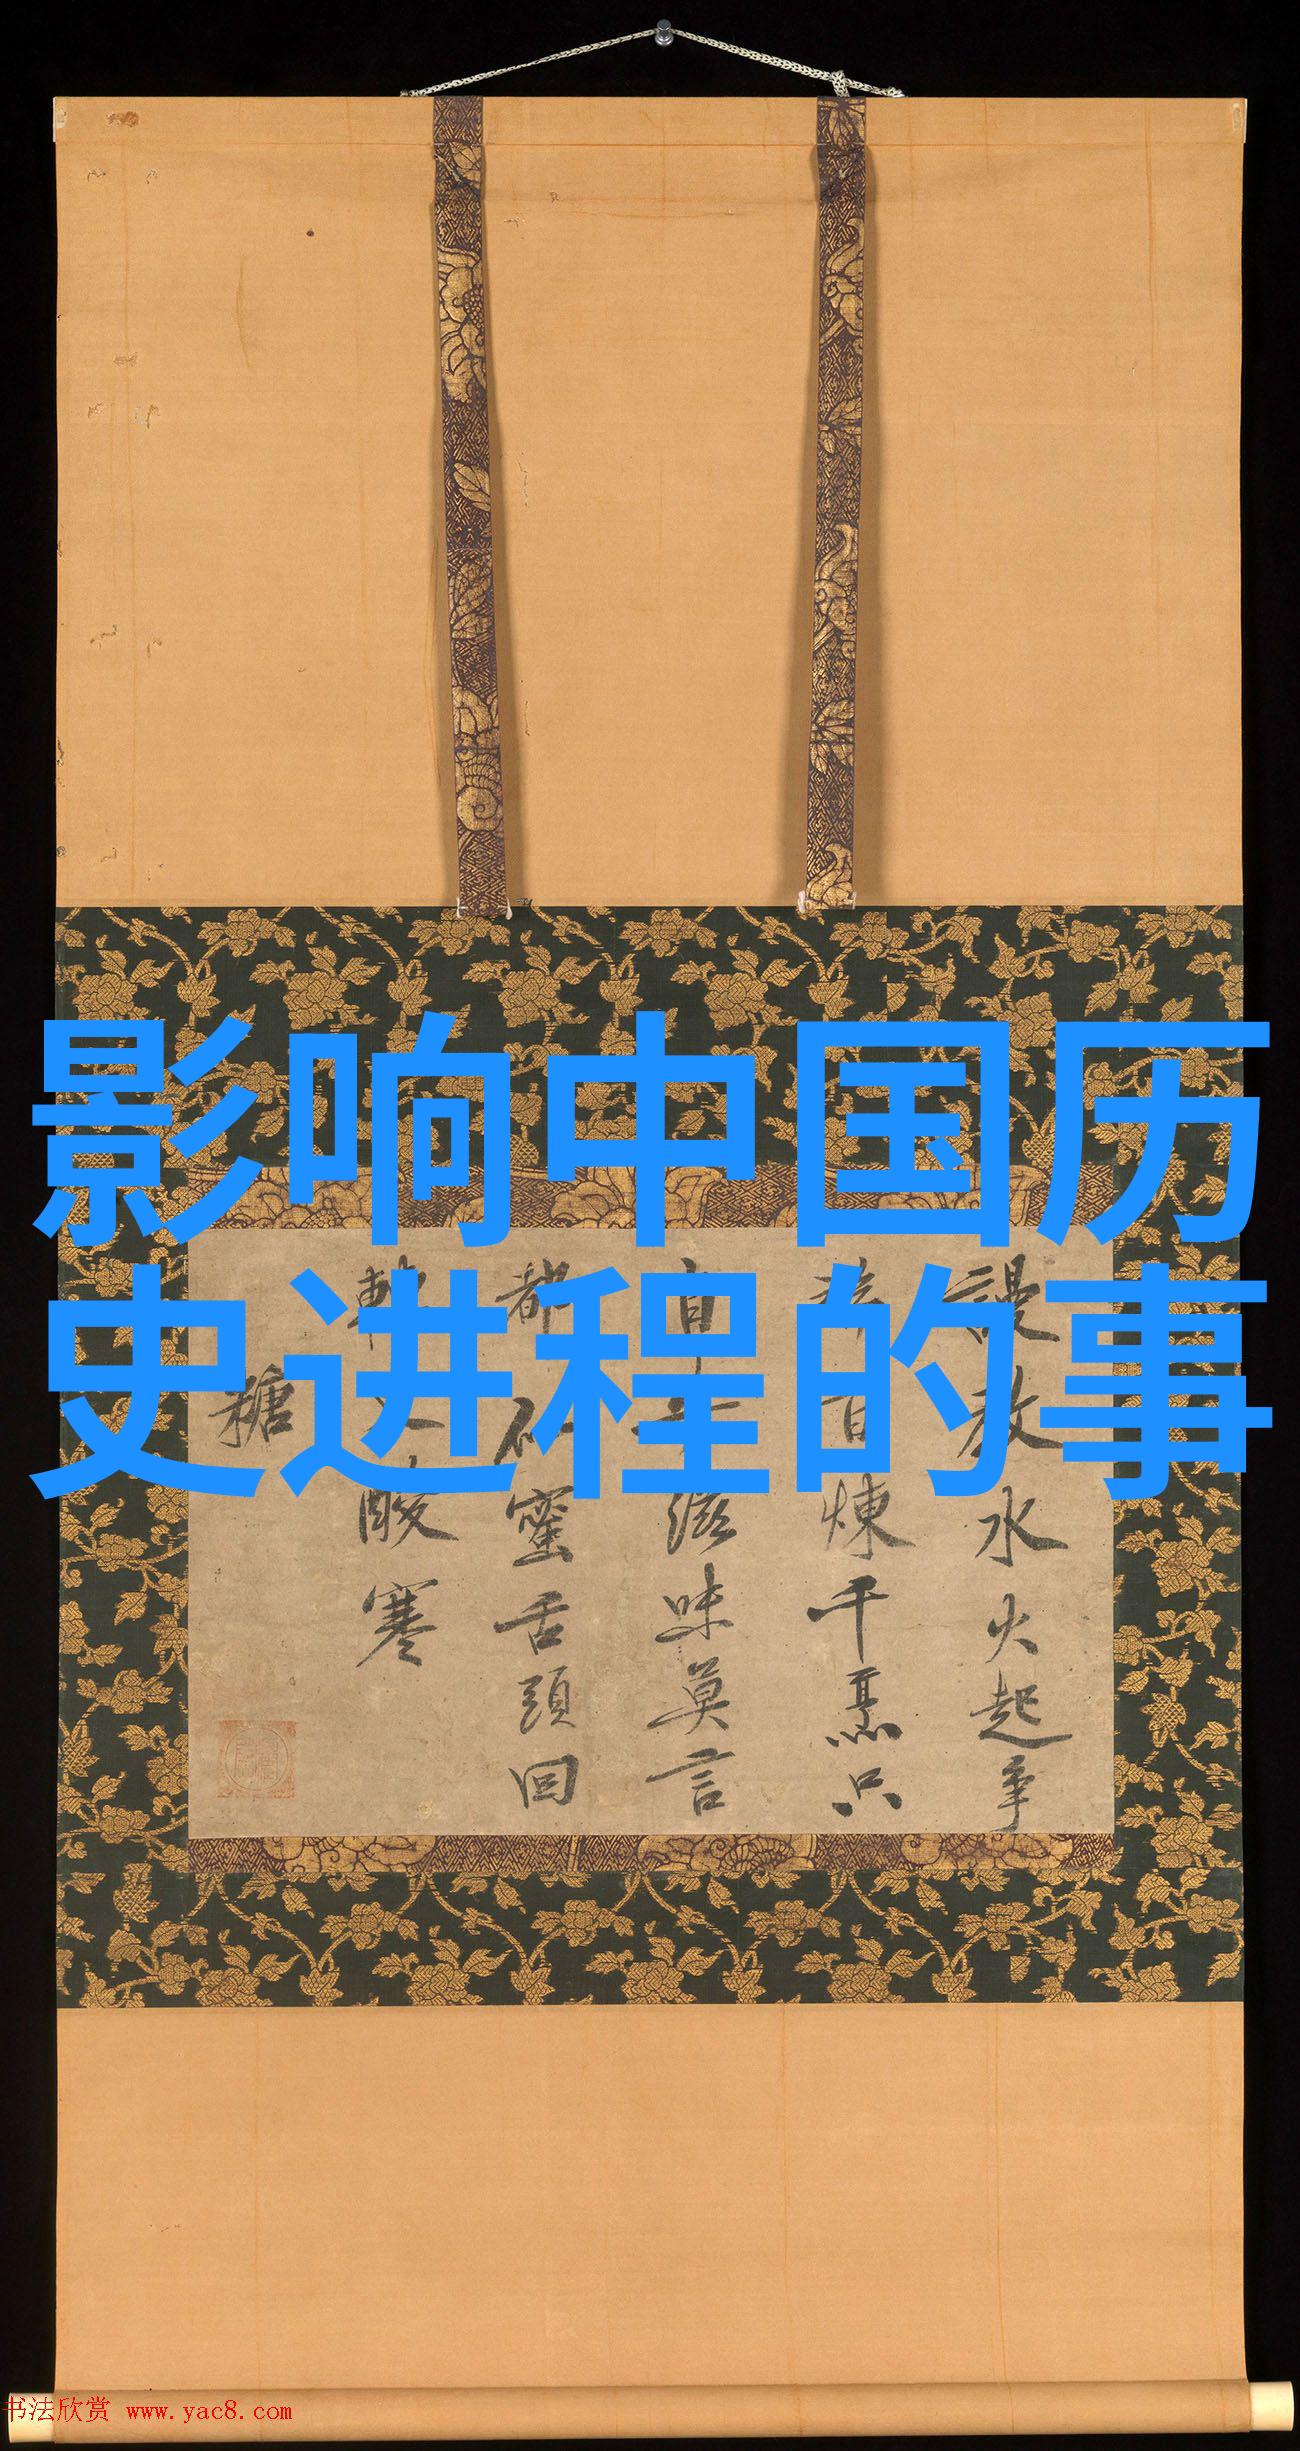 影响中国历
史进程的事
謾教水火起爭
百煉千烹只
滋味莫言
都似蜜舌頭回
酸寒
糖
书法欣赏 www.yac8.com